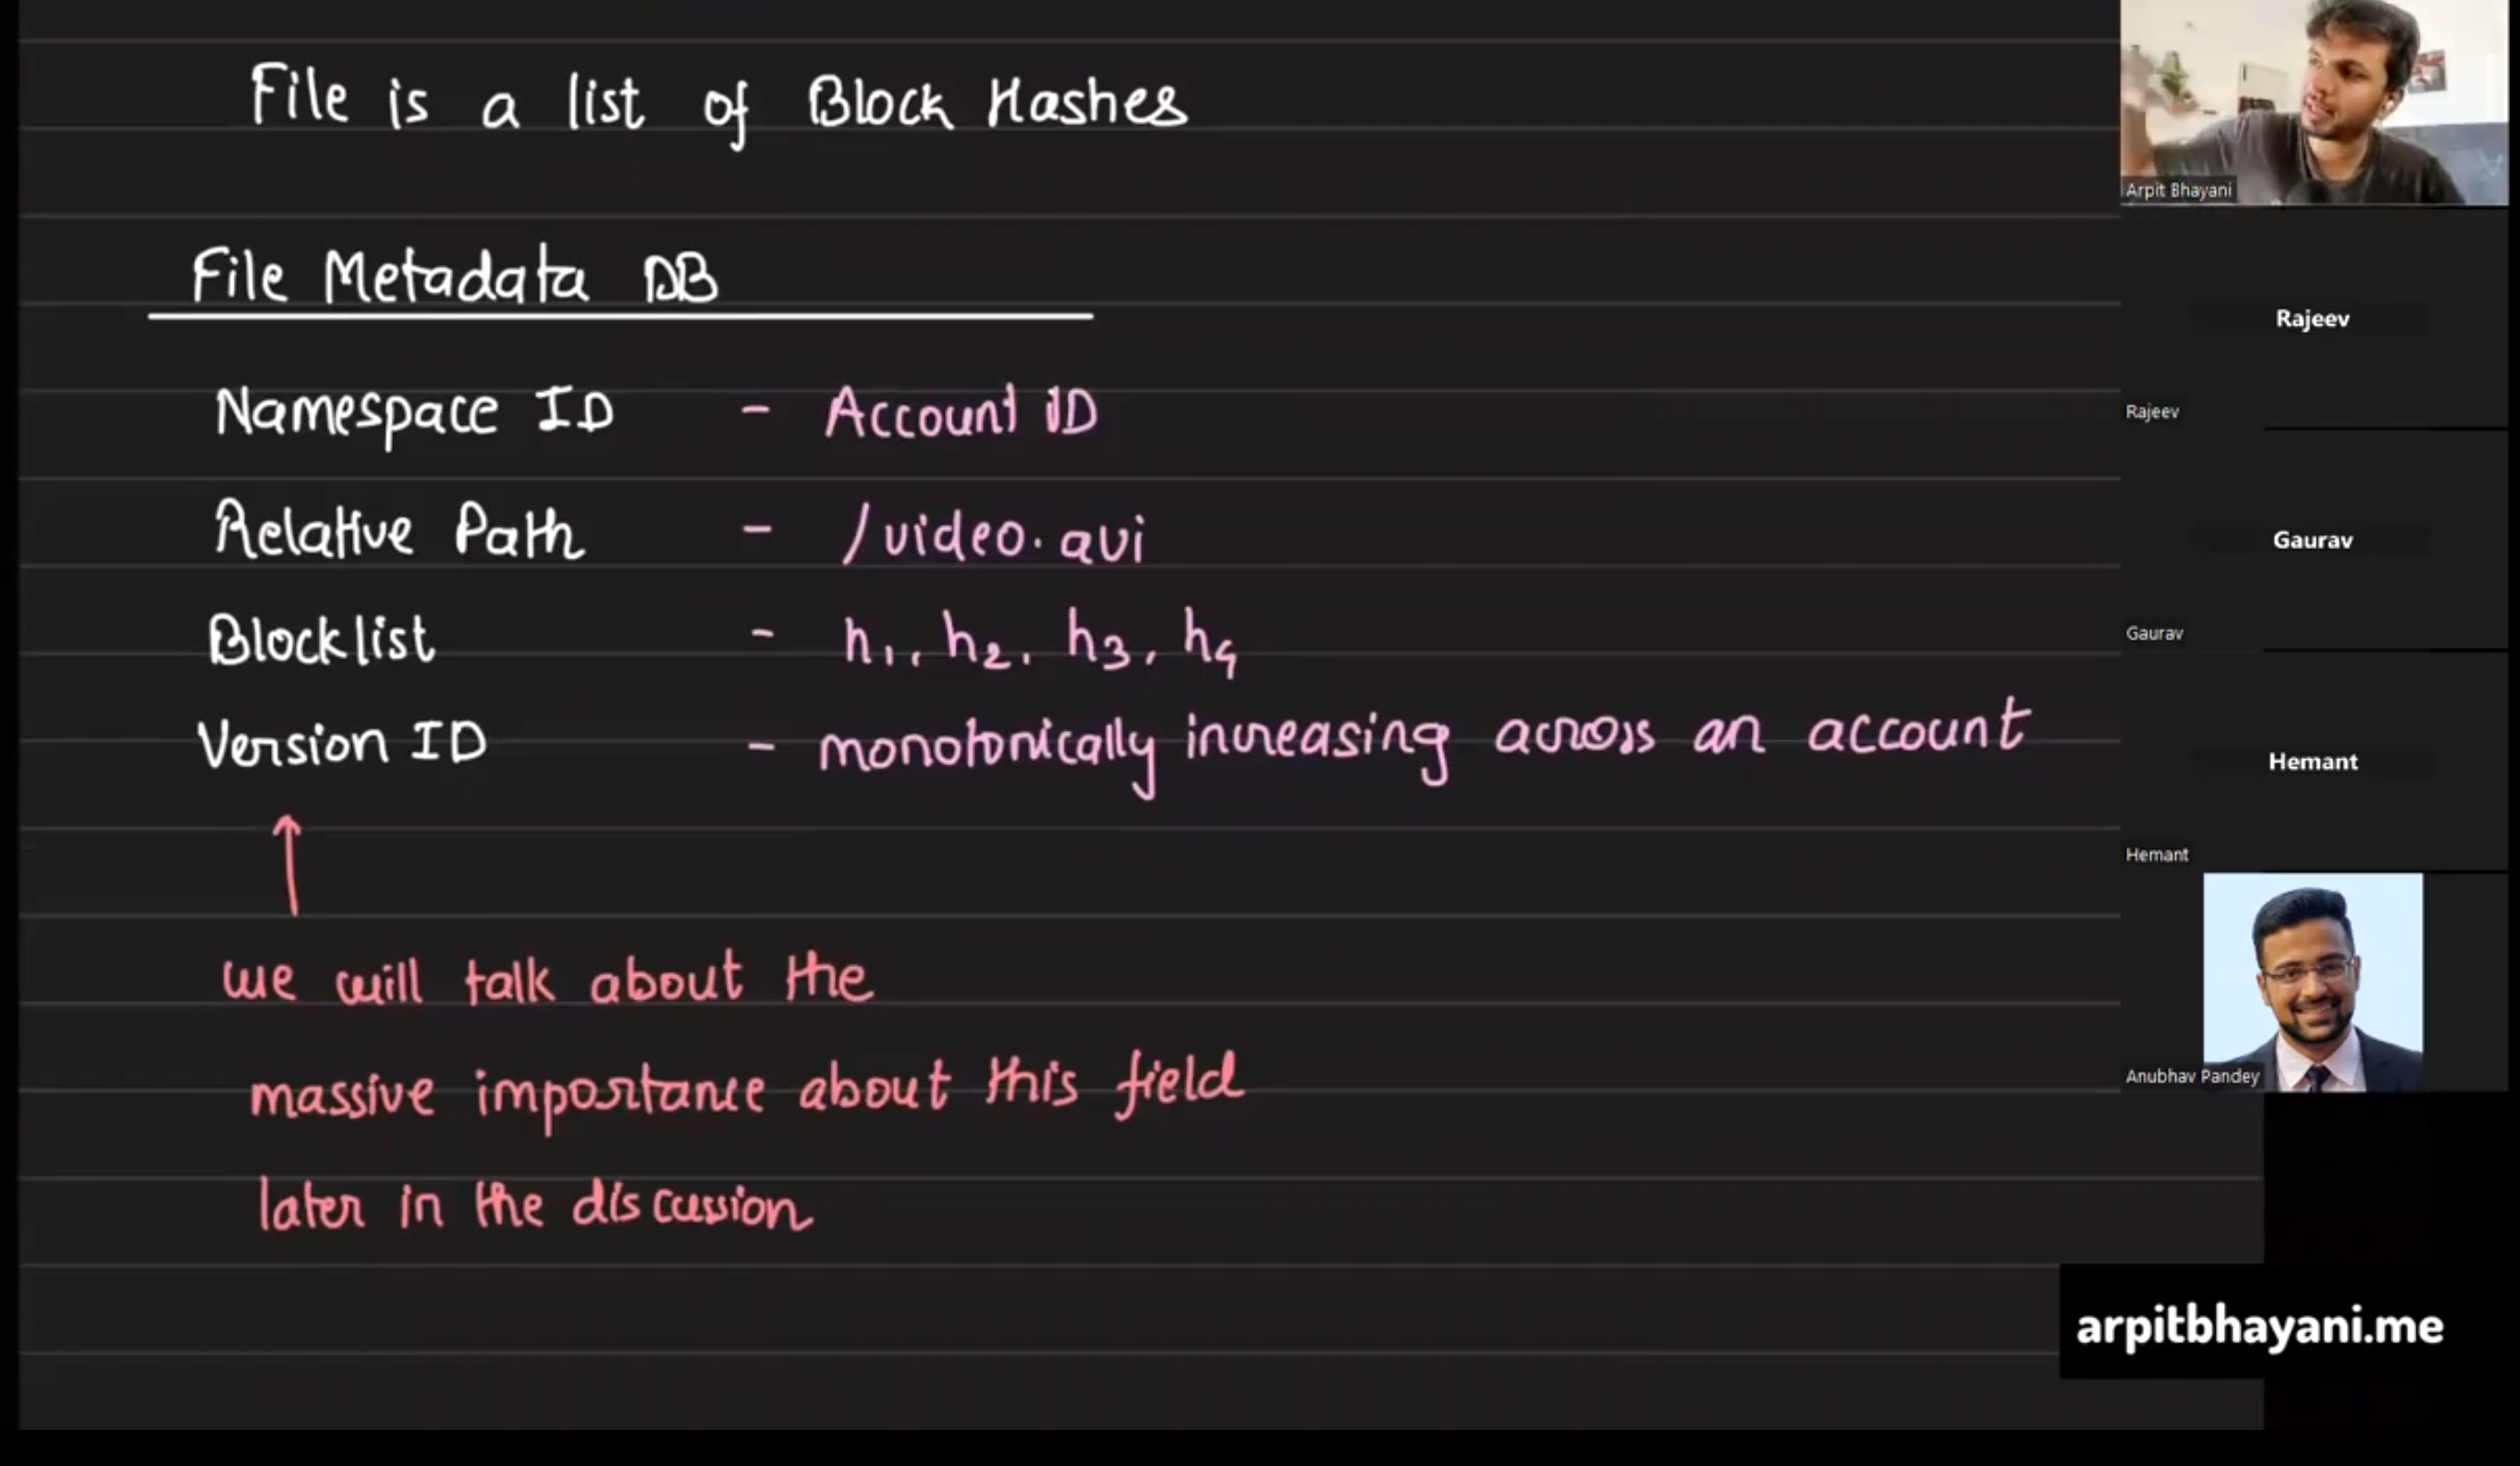 File is a list of Block Hashes
File Metadata DB
Namespace ID - Account ID
Relative Path - /video.avi
Blocklist - h1, h2, h3, h4
Version ID - monotonically increasing across an account
↑
we will talk about the
massive importance about this field
later in the discussion
Arpit Bhayani
Rajeev
Rajeev
Gaurav
Gaurav
Hemant
Hemant
Anubhav Pandey
arpitbhayani.me